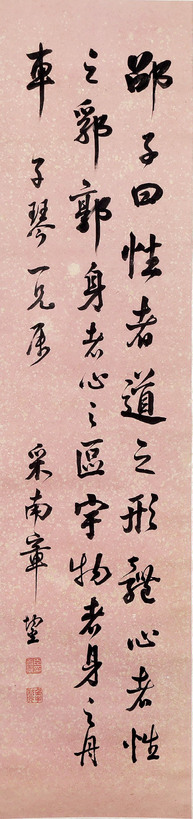 邵子曰性者道之形體心者性
之郛郭身者心之區宇物者身之舟
車 子琴一兄屬
采南章鋆